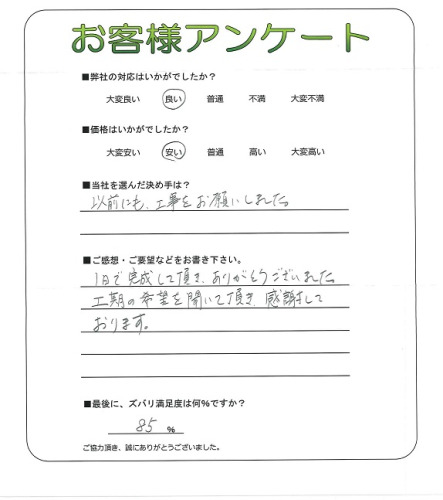 お客様アンケート
■弊社の対応はいかがでしたか？
大変良い 良い 普通 不満 大変不満
■価格はいかがでしたか？
大変安い 安い 普通 高い 大変高い
■当社を選んだ決め手は？
以前にも、工事をお願いしました。
■ご感想・ご要望などをお書き下さい。
1日で完成して頂き、ありがとうございました。
工期の希望を聞いて頂き、感謝して
おります。
■最後に、ズバリ満足度は何％ですか？
85 ％
ご協力頂き、誠にありがとうございました。